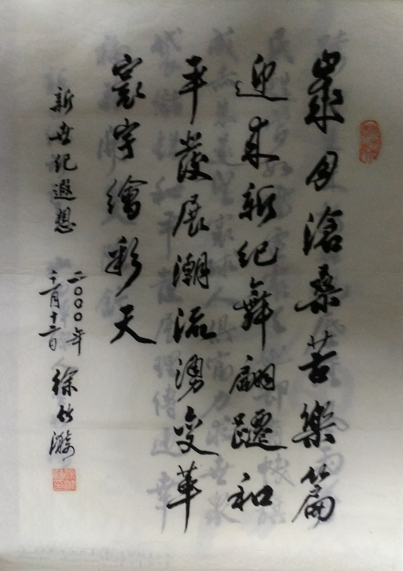 歲月滄桑苦樂篇
迎來新紀舞翩躚和
平發展潮流湧變革
寰宇繪彩天
新世紀遐想
二〇〇〇年
十二月十二日 徐